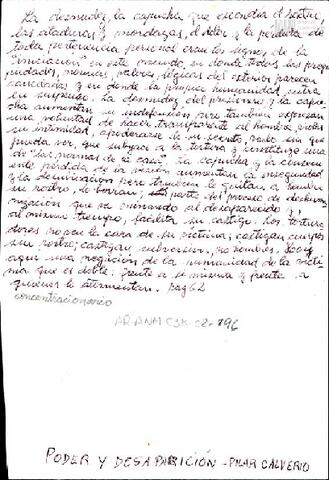 La desnudez, la capucha que escondía el rostro,
las ataduras y mordazas, el dolor y la pérdida de
toda pertenencia personal eran los signos de la
"iniciación" en este mundo, en donde todas las propie
dades, normas, valores, lógicas del exterior parecen
canceladas y en donde la propia humanidad entra
en suspenso. La desnudez del prisionero y la capu
cha aumentan su indefensión pero también expresan
una voluntad de hacer transparente al hombre, violar
su intimidad, apoderarse de su secreto, verlo sin que
pueda ver, que subyace a la tortura y constituye una
de "las normas de la casa". La capucha y la consecu
ente pérdida de la visión aumentan la inseguridad
y la desubicación pero también le quitan al hombre
su rostro, lo borran; es parte del proceso de deshuma
nización que va minando al desaparecido y,
al mismo tiempo, facilita su castigo. Los tortura
dores no ven la cara de su víctima; castigan cuerpos
sin rostro; castigan subversivos, no hombres. Hay
aquí una negación de la humanidad de la vícti
ma que es doble: frente a sí misma y frente a
quienes lo atormentan. pag 62
concentracionario
AR ANM CJK 02-196
PODER Y DESAPARICIÓN - PILAR CALVEIRO